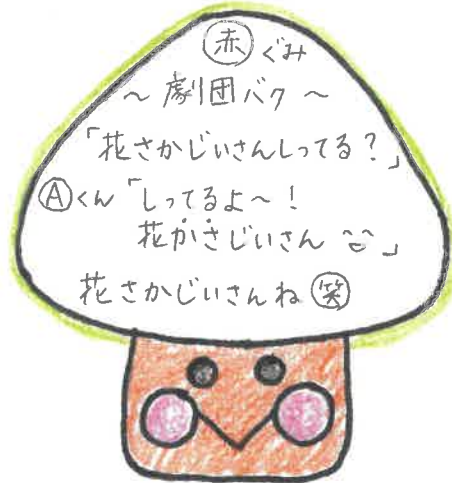 赤ぐみ
～劇団バク～
「花さかじいさんしってる？」
Aくん「しってるよ～！
花かさじいさん」
花さかじいさんね笑